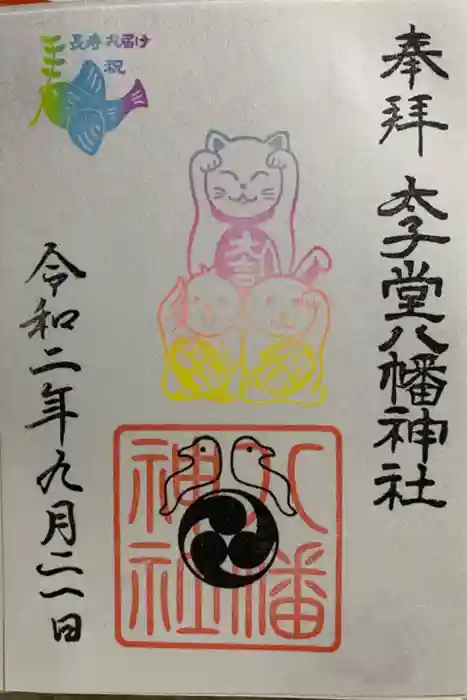 奉拝
太子堂八幡神社
長寿お届け
祝
大吉
八幡
神社
令和二年九月二一日